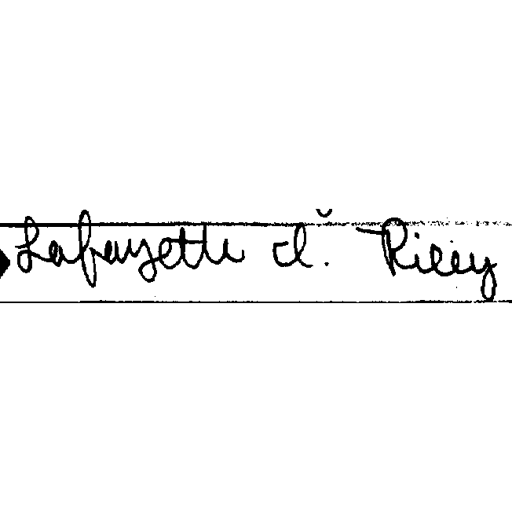 Lafayette d. Riley